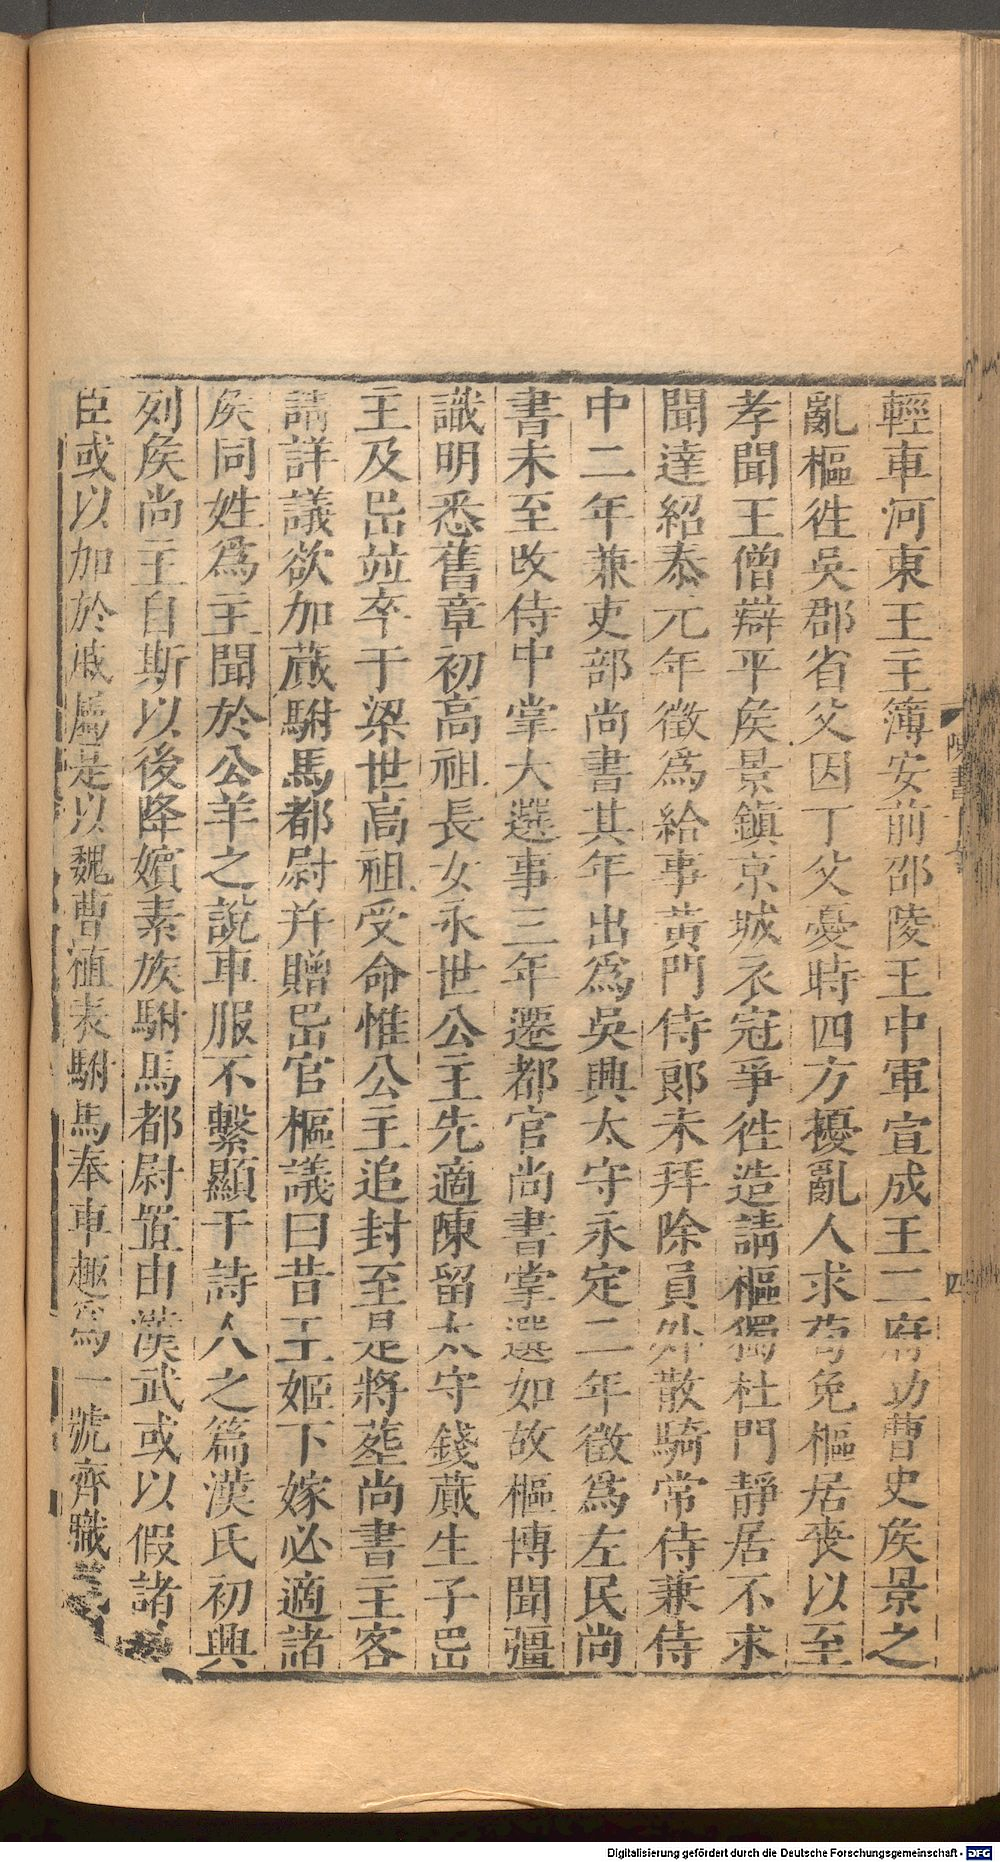 輕車河東王主簿安前邵陵王中軍宣成王二府功曹史矦景之
亂樞徃吳郡省父因丁父憂時四方擾亂人求茍免樞居喪以至
孝聞王僧辯平矦景鎮京城衣冠爭徃造請樞獨杜門靜居不求
聞達紹泰元年徵爲給事黃門侍郞未拜除員外散騎常侍兼侍
中二年兼吏部尚書其年出爲吳興太守永定二年徵爲左民尚
書未至改侍中掌大選事三年遷都官尚書掌選如故樞博聞彊
識明悉舊章初高祖長女永世公主先適陳留太守錢蕆生子岊
主及岊竝卒于梁世高祖受命惟公主追封至是將葬尚書主客
請詳議欲加蕆駙馬都尉并贈岊官樞議曰昔王姬下嫁必適諸
矦同姓爲主聞於公羊之說車服不繫顯于詩人之篇漢氏初興
列矦尚主自斯以後降嬪素族駙馬都尉置由漢武或以假諸
臣或以加於戚屬是以魏曹植表駙馬奉車趣爲一號齊職
陳書十七
四
Digitalisierung gefördert durch die Deutsche Forschungsgemeinschaft - DFG